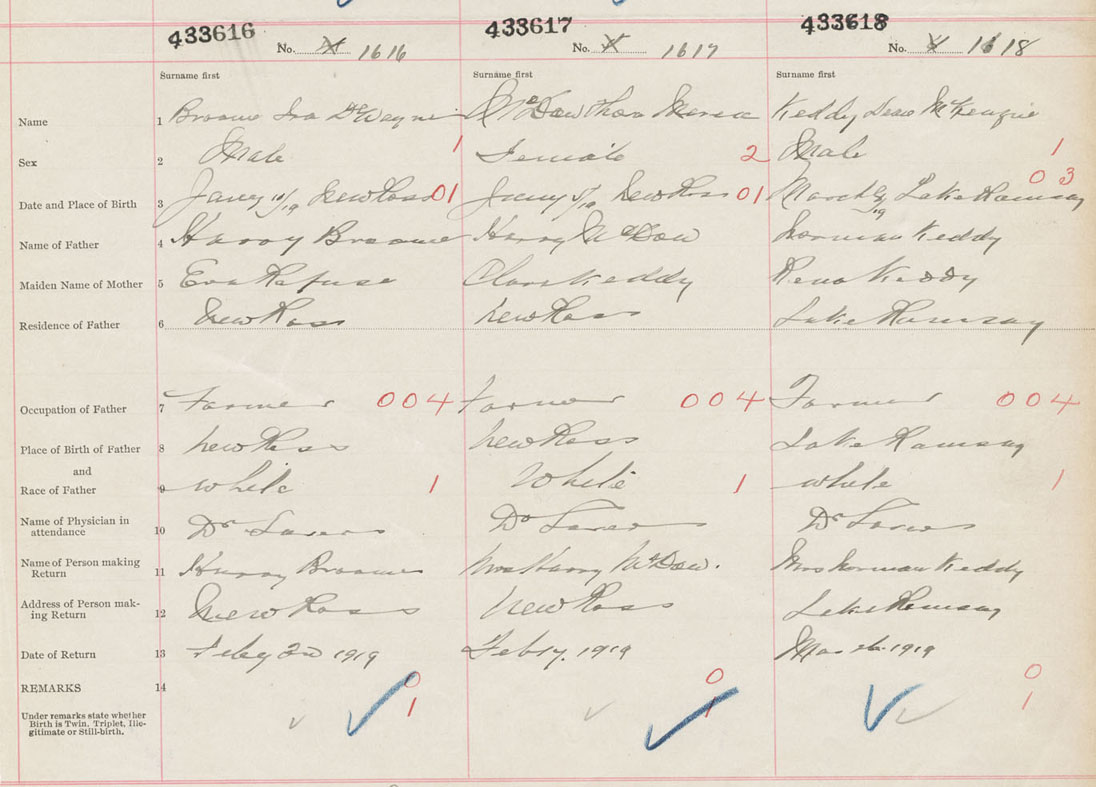 433616 433617 433618
No. X 1616 No. X 1617 No. X 1618
Surname first Surname first Surname first
Name 1 Broome Ira DeWayne McDow Thora Keddy McKenzie
Sex 2 Male 1 Female 2 Male 1
Date and Place of Birth 3 Jany 10/19 New Ross 01 Jany 5/19 New Ross 01 March /19 Lake Ramsay 03
Name of Father 4 Harry Broome Harry McDow Norman Keddy
Maiden Name of Mother 5 Eva Rafuse Clara Keddy Rena Keddy
Residence of Father 6 New Ross New Ross Lake Ramsay
Occupation of Father 7 Farmer 004 Farmer 004 Farmer 004
Place of Birth of Father 8 New Ross New Ross Lake Ramsay
and
Race of Father 9 White 1 White 1 White 1
Name of Physician in
attendance 10 Dr Dr Dr
Name of Person making
Return 11 Harry Broome Mrs Harry McDow. Mrs Norman Keddy
Address of Person mak-
ing Return 12 New Ross New Ross Lake Ramsay
Date of Return 13 Feby 1919 Feb 17. 1919 Mar 1919
REMARKS 14 0 0 0
1 1 1
Under remarks state whether
Birth is Twin. Triplet, Ille-
gitimate or Still-birth.